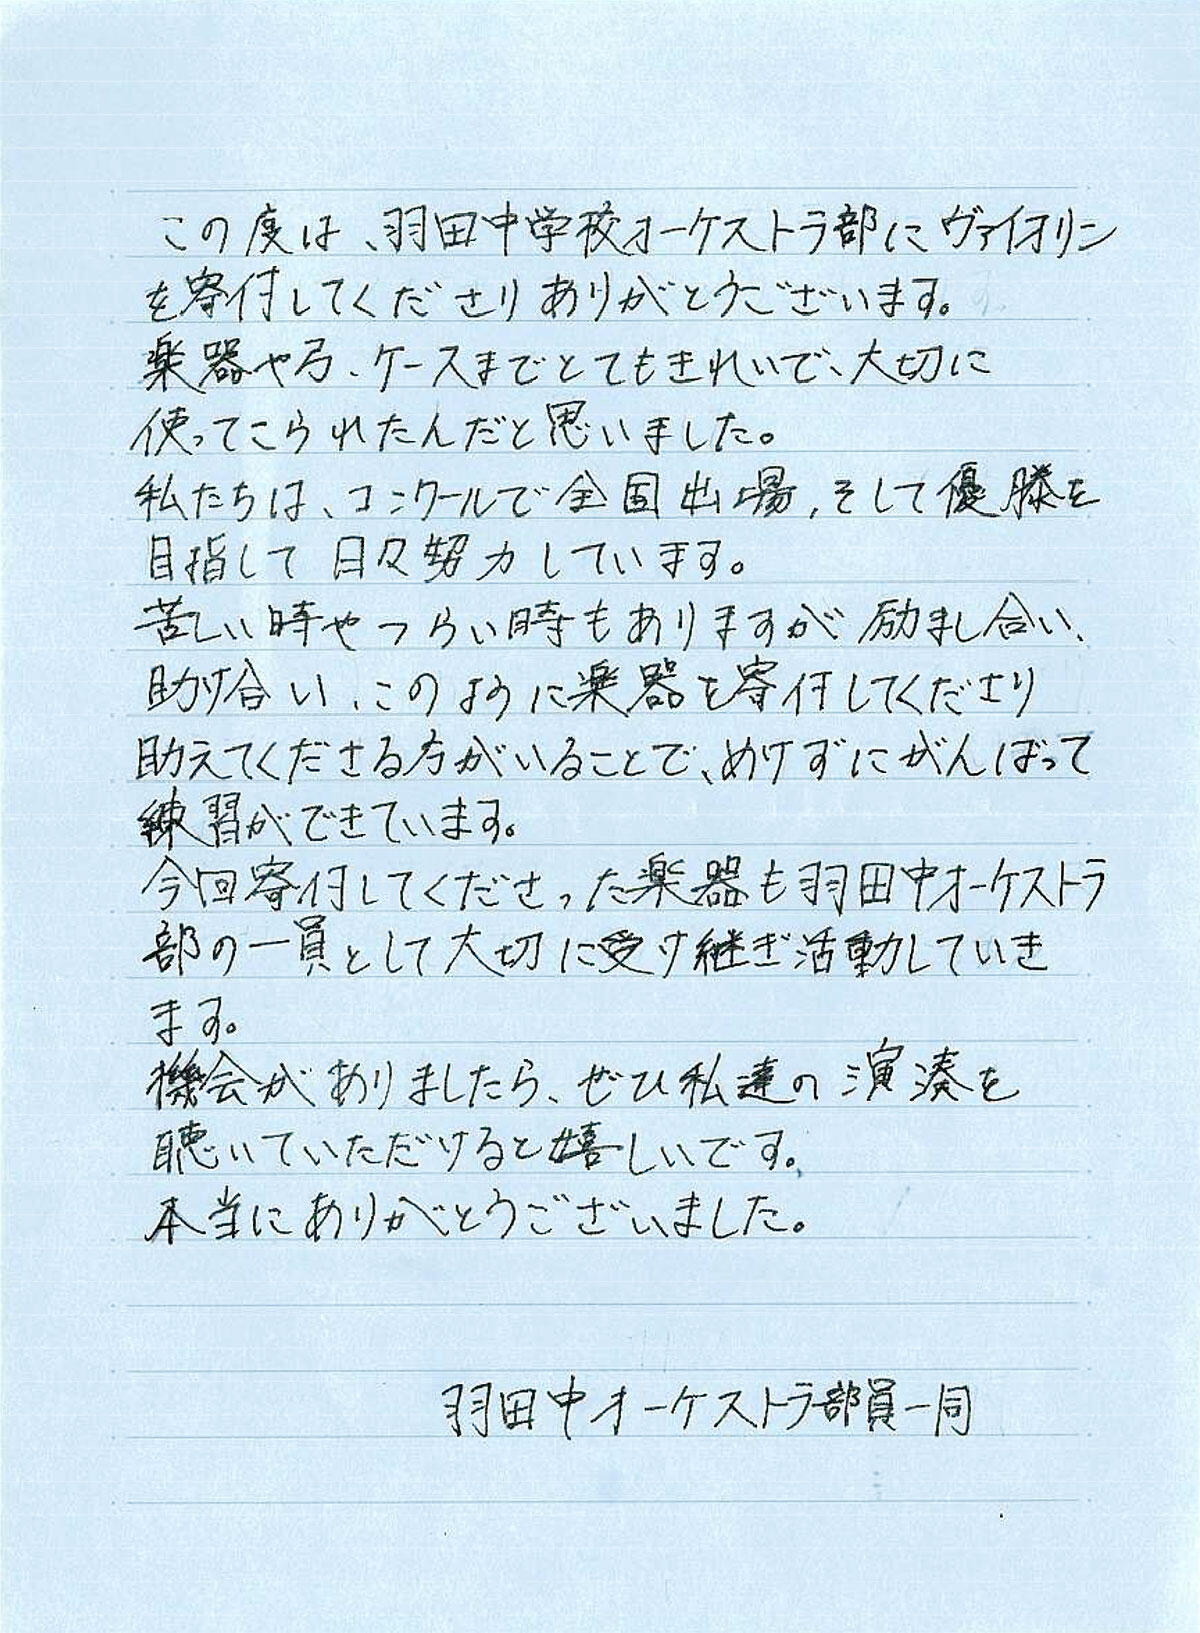 この度は、羽田中学校オーケストラ部にヴァイオリン
を寄付してくださりありがとうございます。
楽器や弓、ケースまでとてもきれいで、大切に
使ってこられたんだと思いました。
私たちは、コンクールで全国出場、そして優勝を
目指して日々努力しています。
苦しい時やつらい時もありますが励まし合い、
助け合い、このように楽器を寄付してくださり
助えてくださる方がいることで、めげずにがんばって
練習ができています。
今回寄付してくださった楽器も羽田中オーケストラ
部の一員として大切に受け継ぎ活動していき
ます。
機会がありましたら、ぜひ私達の演奏を
聴いていただけると嬉しいです。
本当にありがとうございました。
羽田中オーケストラ部員一同